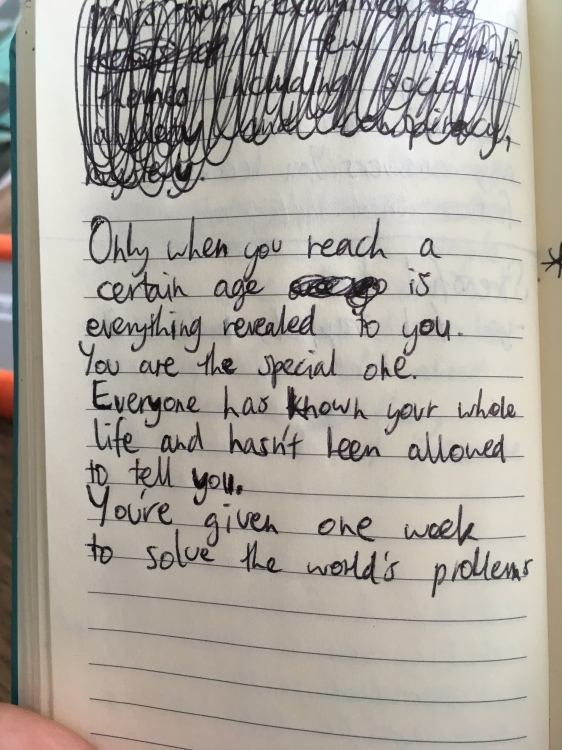 a few different
themes including social
anxiety and conspiracy,
mystery.
Only when you reach a
certain age is
everything revealed to you.
You are the special one.
Everyone has known your whole
life and hasn't been allowed
to tell you.
You're given one week
to solve the world's problems